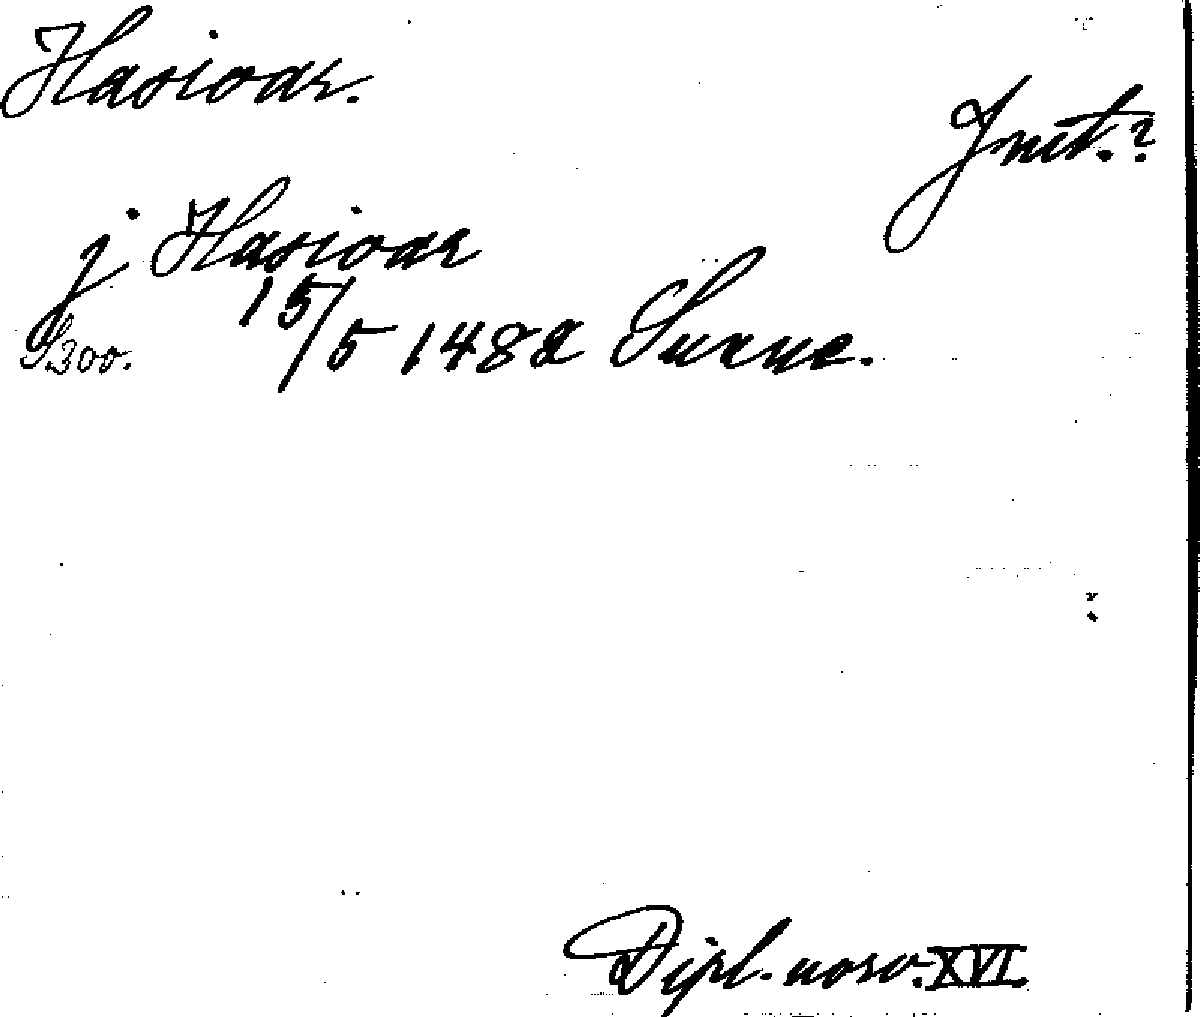 Hasioar.
Jmt.?
j Hasioar
15/5 1482 Sunne.
S. 300.
Dipl. norv. XVI.